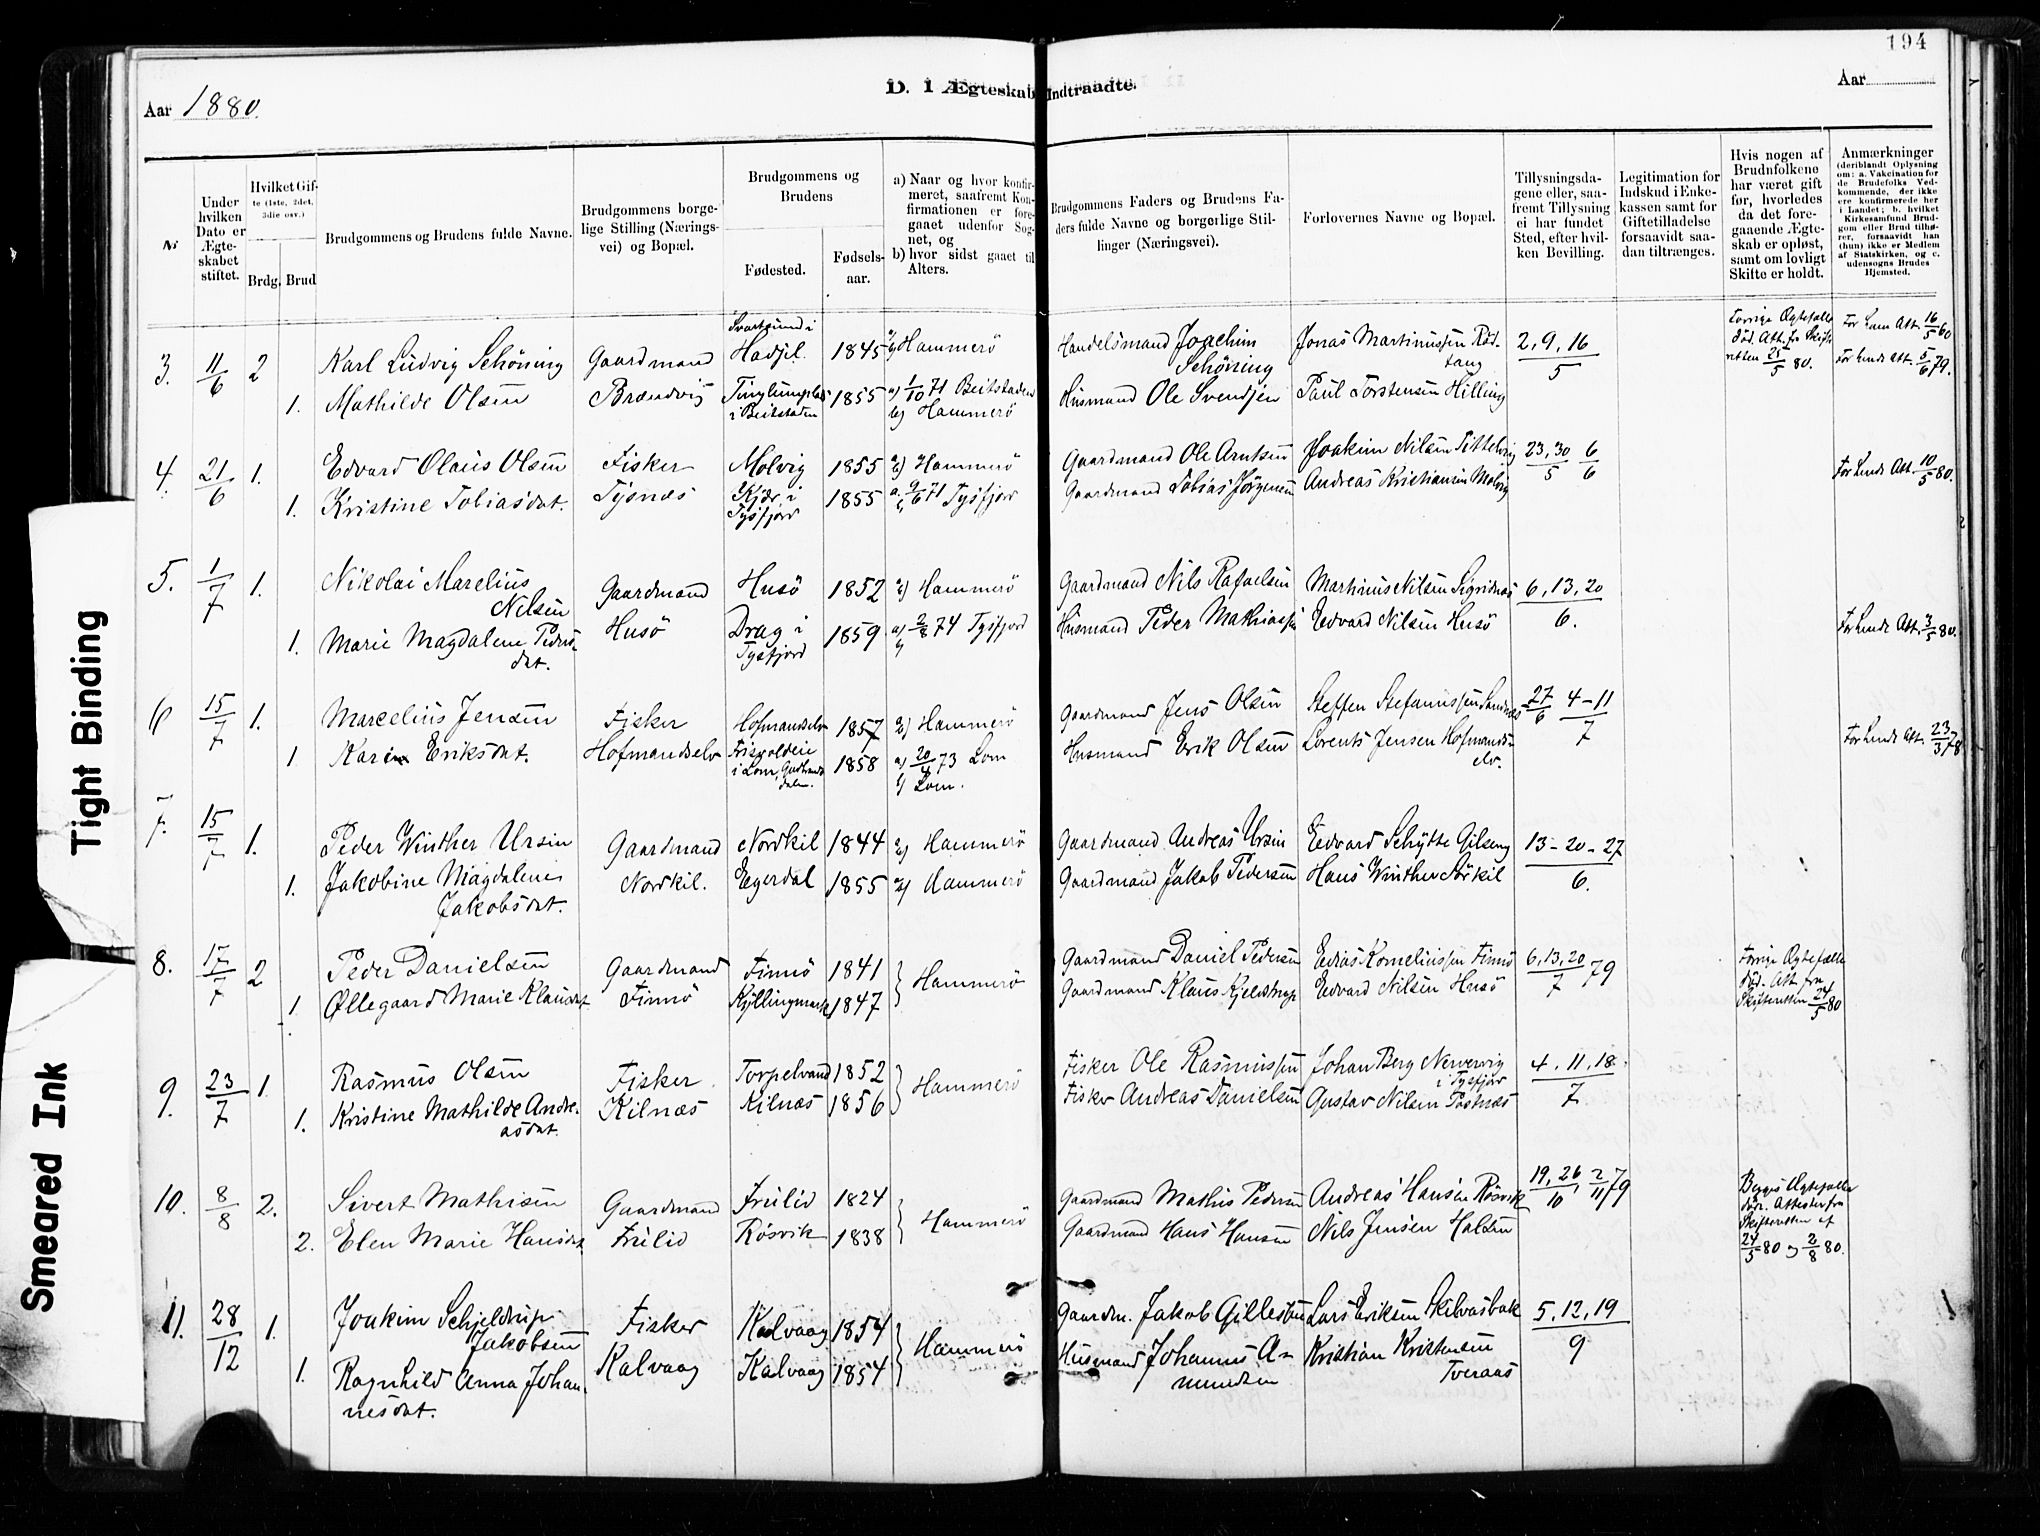 194
Aar 1880.
D. I Ægteskab Indtraadte.
Aar
No
Under hvilken Dato er Ægteskabet stiftet.
Hvilket Gifte (1ste, 2det, 3die osv.)
Brdg. Brud
Brudgommens og Brudens fulde Navne.
Brudgommens borgelige Stilling (Næringsvei) og Bopæl.
Brudgommens og Brudens
Fødested.
Fødselsaar.
a) Naar og hvor konfirmeret, saafremt Konfirmationen er foregaaet udenfor Sognet, og
b) hvor sidst gaaet til Alters.
Brudgommens Faders og Brudens Faders fulde Navne og borgerlige Stillinger (Næringsvei).
Forlovernes Navne og Bopæl.
Tillysningsdagene eller, saafremt Tillysning ei har fundet Sted, efter hvilken Bevilling.
Legitimation for Indskud i Enkekassen samt for Giftetilladelse forsaavidt saadan tiltrænges.
Hvis nogen af Brudnfolkene har været gift før, hvorledes da det foregaaende Ægteskab er opløst, samt om lovligt Skifte er holdt.
Anmærkninger (deriblandt Oplysning om: a. Vakcination for de Brudefolks Vedkommende, der ikke ere konfirmerede her i Landet; b. hvilket Kirkesamfund Brudgom eller Brud tilhører, forsaavidt han (hun) ikke er Medlem af Statskirken, og c. udensogns Brudes Hjemsted.
3. 11/6 2 Karl Ludvig Schöning Gaardmand Svartsund i Hadsel. 1845 Hammerö Handelsmand Joachim Schöning Jonas Martinussen Rödtang 2, 9, 16/5 Forrige Ægtefælle död. Att. fr. Skifteretten 25/5 80. For ham Att. 16/5 60
1. Mathilde Olsen Brændvig i Beitstaden 1855 a) 1/10 71 Beitstaden b) Hammerö Husmand Ole Svendsen Paul Torstensen Hilling For hende Att. 5/6 79.
4. 21/6 1. Edvard Olaus Olsen Fisker Molvig 1855 Hammerö Gaardmand Ole Arntsen Joakim Nilsen 23, 30/5 6/6
1. Kristine Tobiasdat. Tysnæs Kjær i Tysfjord 1855 a. 9/6 71 Tysfjord Gaardmand Tobias Jörgensen Andreas Kristiansen Molvig For hende Att. 10/5 80.
5. 1/7 1. Nikolai Marelius Nilsen Gaardmand Husö 1852 Hammerö Gaardmand Nils Rafaelsen Martinus Nilsen Sigridnæs 6, 13, 20/6.
1. Marie Magdalene Pedersdat. Husö Drag i Tysfjord 1859 a) 2/8 74 Tysfjord Husmand Peder Mathiassen Edvard Nilsen Husö For hende Att. 3/5 80.
6 15/7 1. Marcelius Jensen Fisker Hofmandselv 1857 Hammerö Gaardmand Jens Olsen Steffen Stefanussen Sandnæs 27/6 4-11/7
1. Karin Eriksdat. Hofmandselv i Lom, Gudbrandsdalen. 1858 a) 20/4 73 Lom b) Lom. Husmand Erik Olsen Lorents Jensen Hofmandselv. For hende Att. 23/3 78
7. 15/7 1. Peder Winther Ursin Gaardmand Nordkil 1844 Hammerö Gaardmand Andreas Ursin Edvard Schytte 13-20-27/6.
1. Jakobine Magdalene Jakobsdat. Nordkil. Egerdal 1855 Hammerö Gaardmand Jakob Pedersen Hans Winther Sörkil
8. 17/7 2 Peder Danielsen Gaardmand Finnö 1841 } Hammerö Gaardmand Daniel Pedersen Edias Korneliussen Finnö 6, 13, 20/7 79 Forrige Ægtefælle död. Att. fra Skifteretten 24/5 80
1. Øllegaard Marie Klausdat. Finnö Kyllingmark 1847 Gaardmand Klaus Kjeldstrup Edvard Nilsen Husö
9. 23/7 1. Rasmus Olsen Fisker Torpelvand 1852 } Hammerö Fisker Ole Rasmussen Johan Berg Nevervig i Tysfjor 4, 11, 18/7.
1. Kristine Mathilde Andreasdat. Kilnæs Kilnæs 1856 Fisker Andreas Danielsen Gustav Nilsen
10. 8/8 2. Sivert Mathisen Gaardmand 1824 } Hammerö Gaardmand Mathis Pedersen Andreas Hansen Rösvik 19, 26/10, 2/11 79 Begges Ægtefæller död. Attester fra Skifteretten af 24/5 80 og 2/8 80.
2. Elen Marie Hansdat. Rösvik 1838 Gaardmand Hans Hansen Nils Jensen Halden
11. 28/12 1. Joakim Schjeldrup Jakobsen Fisker Kalvaag 1854 } Hammerö Gaardm. Jakob Gillesen Lars Eriksen Skilvasbak 5, 12, 19/9
1. Ragnhild Anna Johannesdat. Kalvaag Kalvaag 1854 Husmand Johannes Amundsen Kristian Kristensen Tveraas
Tight Binding
Smeared Ink